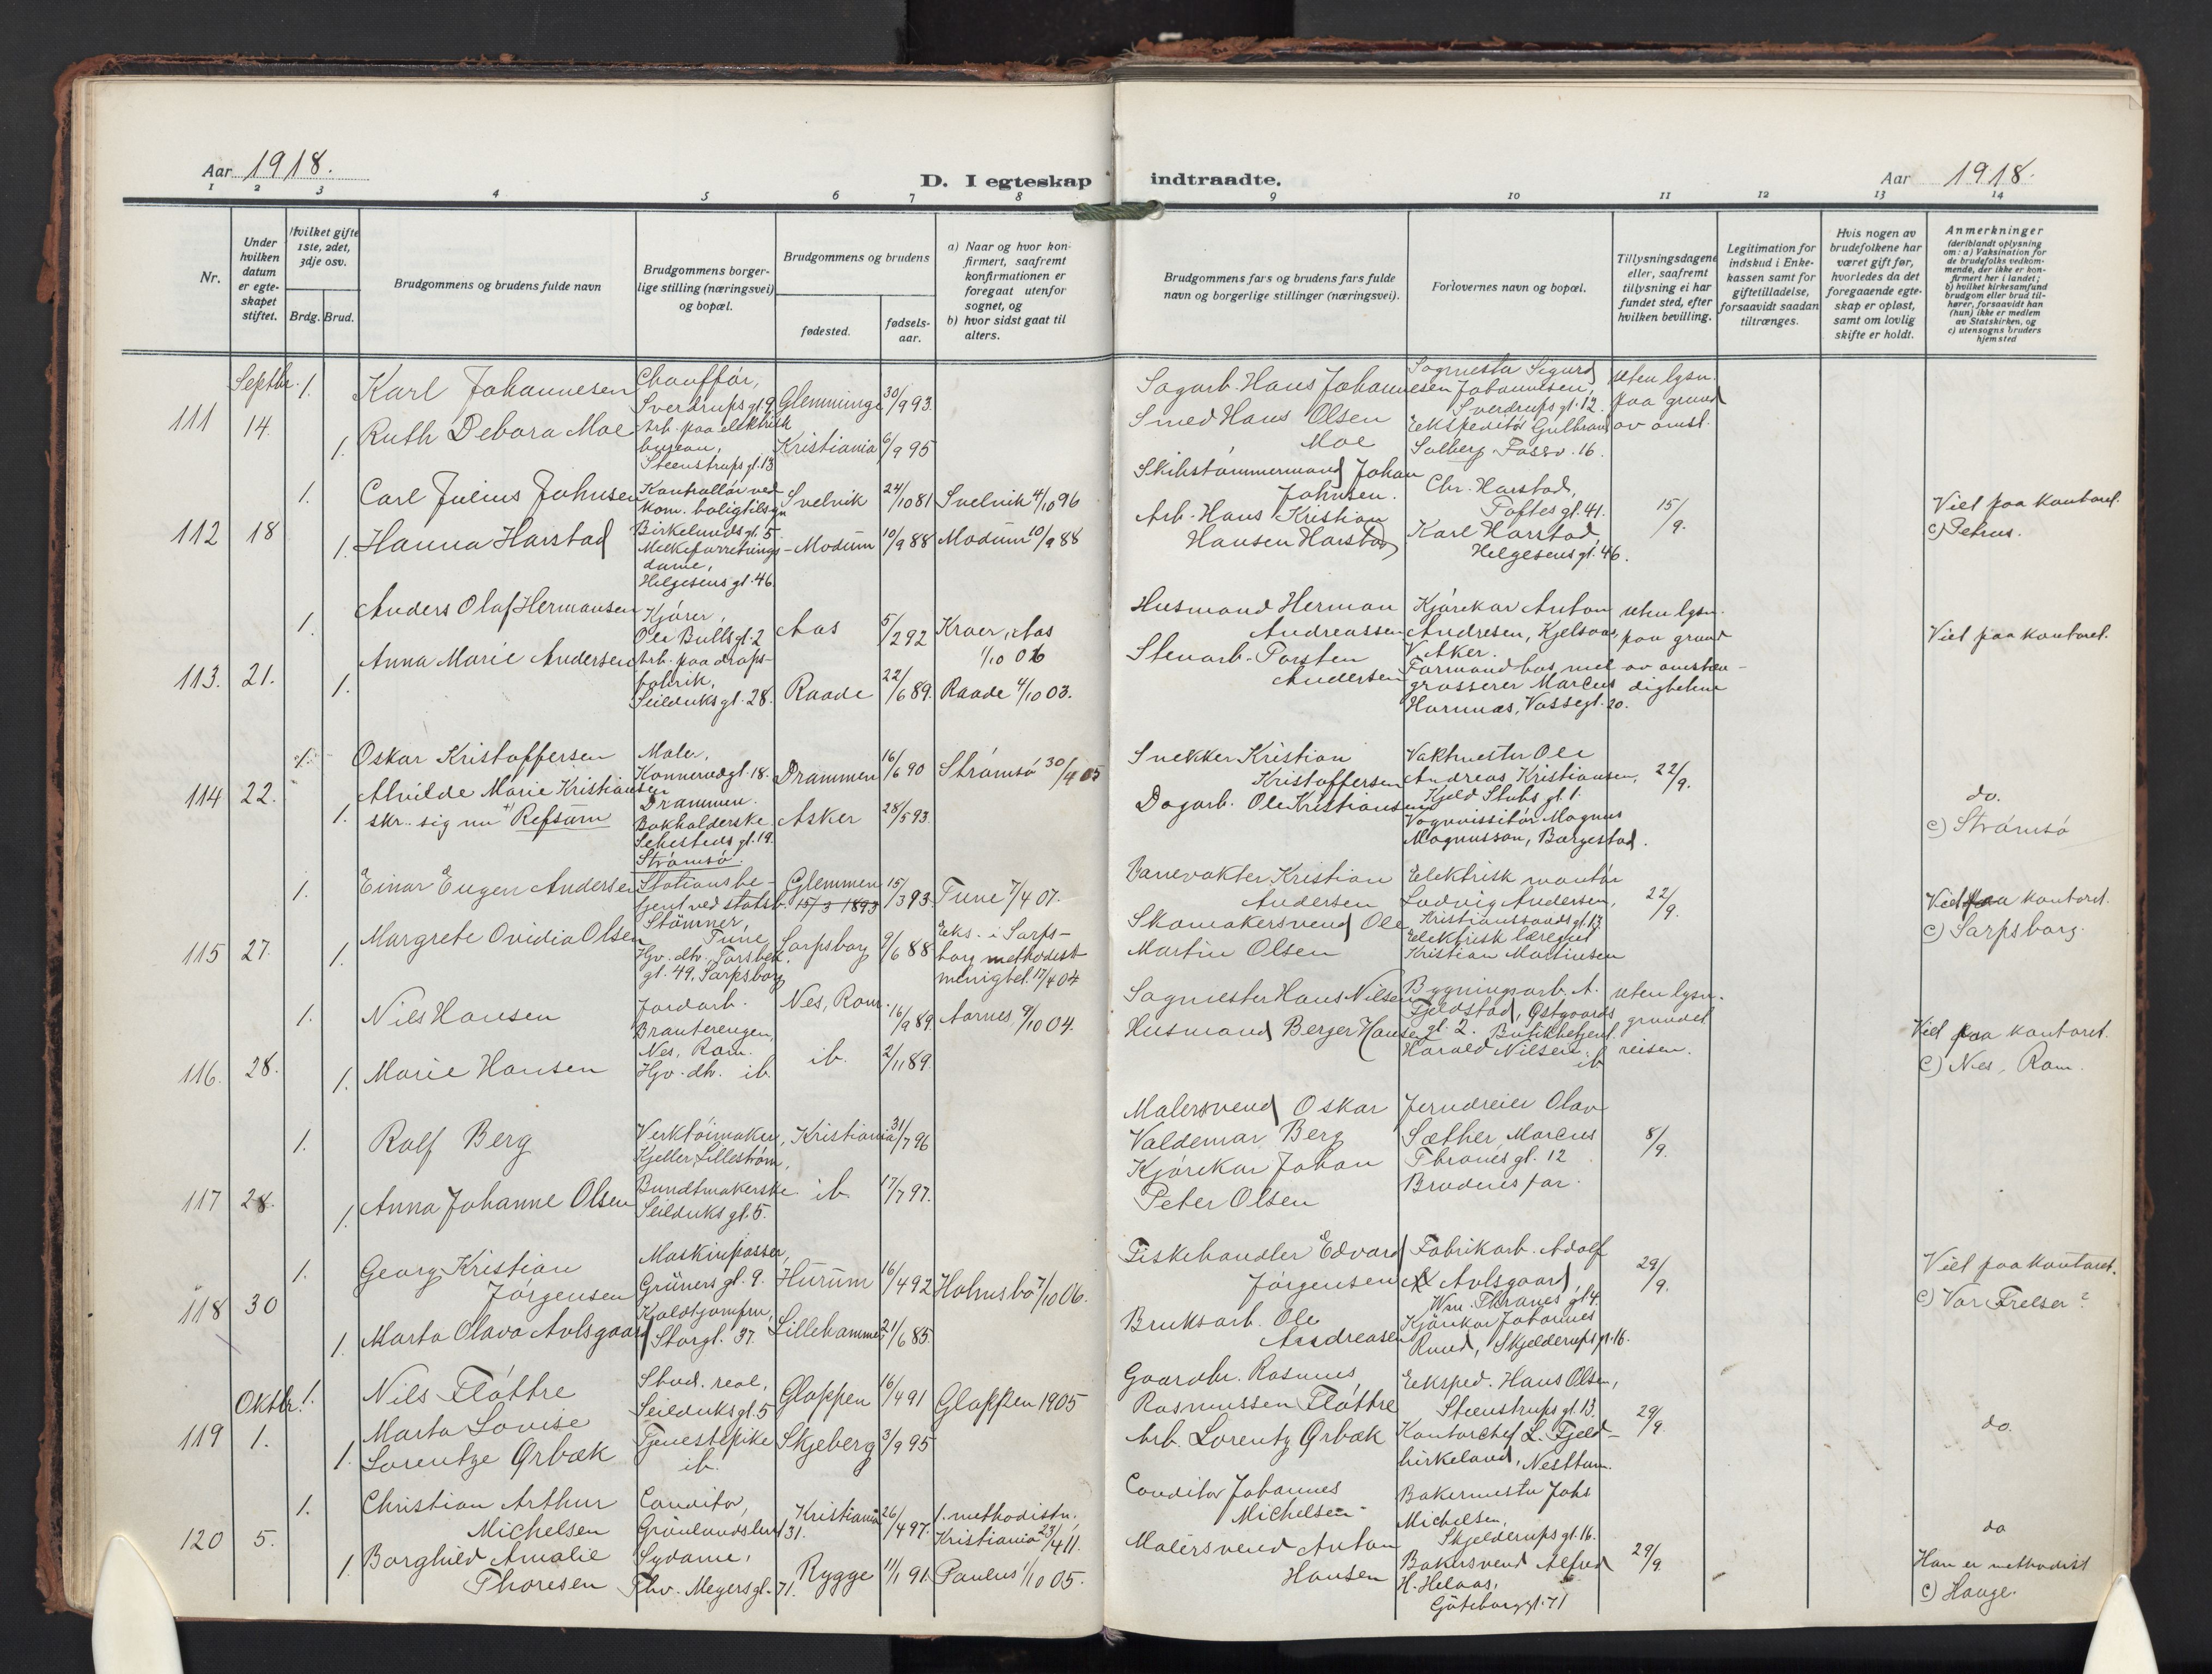 Aar 1918.
D. I egteskap indtraadte.
Aar 1918.
1 2 3 4 5 6 7 8 9 10 11 12 13 14
Nr.
Under hvilken datum er egteskapet stiftet.
Hvilket gifte 1ste, 2det, 3dje osv.
Brdg. Brud.
Brudgommens og brudens fulde navn
Brudgommens borgerlige stilling (næringsvei) og bopæl.
Brudgommens og brudens
fødested.
fødselsaar.
a) Naar og hvor konfirmert, saafremt konfirmationen er foregaat utenfor sognet, og
b) hvor sidst gaat til alters.
Brudgommens fars og brudens fars fulde navn og borgerlige stillinger (næringsvei).
Forlovernes navn og bopæl.
Tillysningsdagene eller, saafremt tillysning ei har fundet sted, efter hvilken bevilling.
Legitimation for indskud i Enkekassen samt for giftetilladelse, forsaavidt saadan tiltrænges.
Hvis nogen av brudefolkene har været gift før, hvorledes da det foregaaende egteskap er opløst, samt om lovlig skifte er holdt.
Anmerkninger
(deriblandt oplysning om: a) Vaksination for de brudefolks vedkommende, der ikke er konfirmert her i landet; b) hvilket kirkesamfund brudgom eller brud tilhører, forsaavidt han (hun) ikke er medlem av Statskirken, og c) utensogns bruders hjemsted
111
Septbr. 14.
1. Karl Johannesen
Chauffør, Sverdrups gt. 9
Glemminge
30/9 93.
Sagarb. Hans Johannesen
Sagmester Sigurd Johannesen, Sverdrups gt. 12.
Uten lysn. paa grund av omst.
1. Ruth Debora Moe
Arb. paa elektrisk bureau, Steenstrups gt. 13
Kristiania
6/9 95
Smed Hans Olsen Moe
Ekspeditør Gulbrand Solberg Fossv. 16.
112 18
1. Carl Julius Johnsen
Kontrollør ved kom. boligtilsyn Birkelunds gt. 5.
Svelvik
24/10 81
Svelvik 4/10 96
Skibstømmermand Johan Johnsen.
Chr. Harstad, Toftes gt. 41.
15/9.
Viet paa kontoret.
c) Petrus.
1. Hanna Harstad
Melkeforretningsdame, Helgesens gt. 46.
Modum
10/9 88
Modum 10/9 88
Arb. Hans Kristian Hansen Harstad
Karl Harstad, Helgesens gt. 46.
113. 21.
1. Anders Olaf Hermansen
Kjører, Ole Bulls gt. 2
Aas
5/2 92
Kroer, Aas 1/10 06
Husmand Herman Andreassen
Kjørekar Anton Andresen, Kjelsaas, V. Aker.
Uten lysn. paa grund av omstændigheterne
Viet paa kontoret.
1. Anna Marie Andersen
Arb. paa dropsfabrik, Seilduks gt. 28.
Raade
22/6 89.
Raade 4/10 03.
Stenarb. Torsten Andersen
Formand hos mel grosserer Marcus Harnæs, Vossegt. 20.
114 22.
1. Oskar Kristoffersen
Maler, Konnerudgt. 18. Drammen.
Drammen
16/6 90
Strømsø 30/4 05
Snekker Kristian Kristoffersen
Vaktmester Ole Andreas Kristiansen, Kjeld Stubs gt. 1.
22/9.
do.
c) Strømsø
1. Alvilde Marie Kristiansen
skr. sig nu Refsum
Bokholderske Sehesteds gt. 19. Strømsø.
Asker
28/5 93.
Dagarb. Ole Kristiansen
Vognvisitør Magnus Magnusson, Borgestad.
115 27.
1. Einar Eugen Andersen
Stationsbetjent ved statsb. Stømner, Tune
Glemmen 15/3 1893
15/3 93.
Tune 7/4 07.
Banevakter Kristian Andersen
Elektrisk montør Ludvig Andersen, Kristianssands gt. 13.
22/9.
Viet paa kontoret.
c) Sarpsborg.
1. Margrete Ovidia Olsen
Hjv. dtr. Torsbek. gt. 49, Sarpsborg
Sarpsborg
9/6 88
Eks. i Sarpsborg methodistmenighet 17/4 04
Skomakersvend Ole Martin Olsen
Elektrisk læregut Kristian Martinsen
116. 28.
1. Nils Hansen
Jordarb. Branterengen, Nes, Rom.
Nes, Rom.
16/9 89
Aarnes 9/10 04.
Sagmester Hans Nilsen
Bygningsarb. A. Fjeldstad, Østgaards gt. 2.
Uten lysn. grundet reisen.
Viet paa kontoret.
c) Nes, Rom.
1. Marie Hansen
Hjv. dtr. ib.
ib.
2/11 89.
Husmand Berger Hansen
Butikbetjent Harald Nilsen, ib
117 28.
1. Rolf Berg
Verktøimaker, Kjeller, Lillestrøm,
Kristiania
31/7 96
Malersvend Oskar Valdemar Berg
Jerndreier Olav Sæther, Marcus Thranes gt. 12
8/9.
1. Anna Johanne Olsen
Bundtmakerske Seilduks gt. 5.
ib.
17/7 97.
Kjørekar Johan Peter Olsen
Brudens far.
118 30
1. Georg Kristian Jørgensen
Maskinpasser, Grüners gt. 9.
Hurum
16/4 92
Holmsbo 7/10 06.
Fiskehandler Edvard Jørgensen
Fabrikarb. Adolf Avlsgaard, Wm. Thranes gt. 4.
29/9.
Viet paa kontoret.
c) Vor Frelser ?
1. Marta Olava Avlsgaard
Koldtjomfru, Storgt. 37.
Lillehammer
21/6 85.
Bruksarb. Ole Andreasen
Kjørekar Johannes Ruud, Skjelderups gt. 16.
119
Oktbr. 1.
1. Nils Fløttre
Stud. real, Seilduks gt. 5
Gloppen
16/4 91
Gloppen 1905
Gaardbr. Rasmus Rasmussen Fløttre
Eeksped. Hans Olsen, Steenstrups gt. 13.
29/9
do.
1. Marta Lovise Lorentze Ørbæk
Tjenestepike ib.
Skjeberg
3/9 95
Arb. Lorentz Ørbæk
Kontorchef L. Fjeldbirkeland, Nesttun.
120 5.
1. Christian Arthur Michelsen
Conditor, Grønlandsleret 31.
Kristiania
26/4 97.
1. methodistm. Kristiania 23/4 11.
Conditor Johannes Michelsen
Bakermester Johs Michelsen, Skjelderups gt. 16.
29/9.
do
Han er methodist
c) Hauge.
1. Borghild Amalie Thoresen
Sydame, Thv. Meyers gt. 71.
Rygge
11/1 91.
Paulus 1/10 05.
Malersvend Anton Hansen
Bakersvend Alfred H. Helaas, Göteborggt. 71